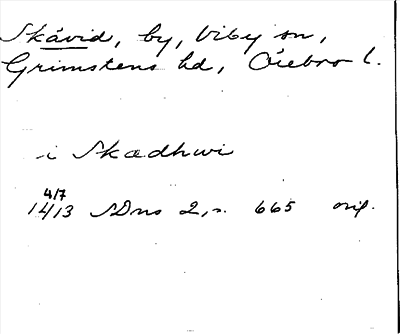 Skåvid, by, Viby sn,
Grimstens hd, Örebro l.
i Skædhwi
4/7
1413 SDns 2, s. 665 orig.